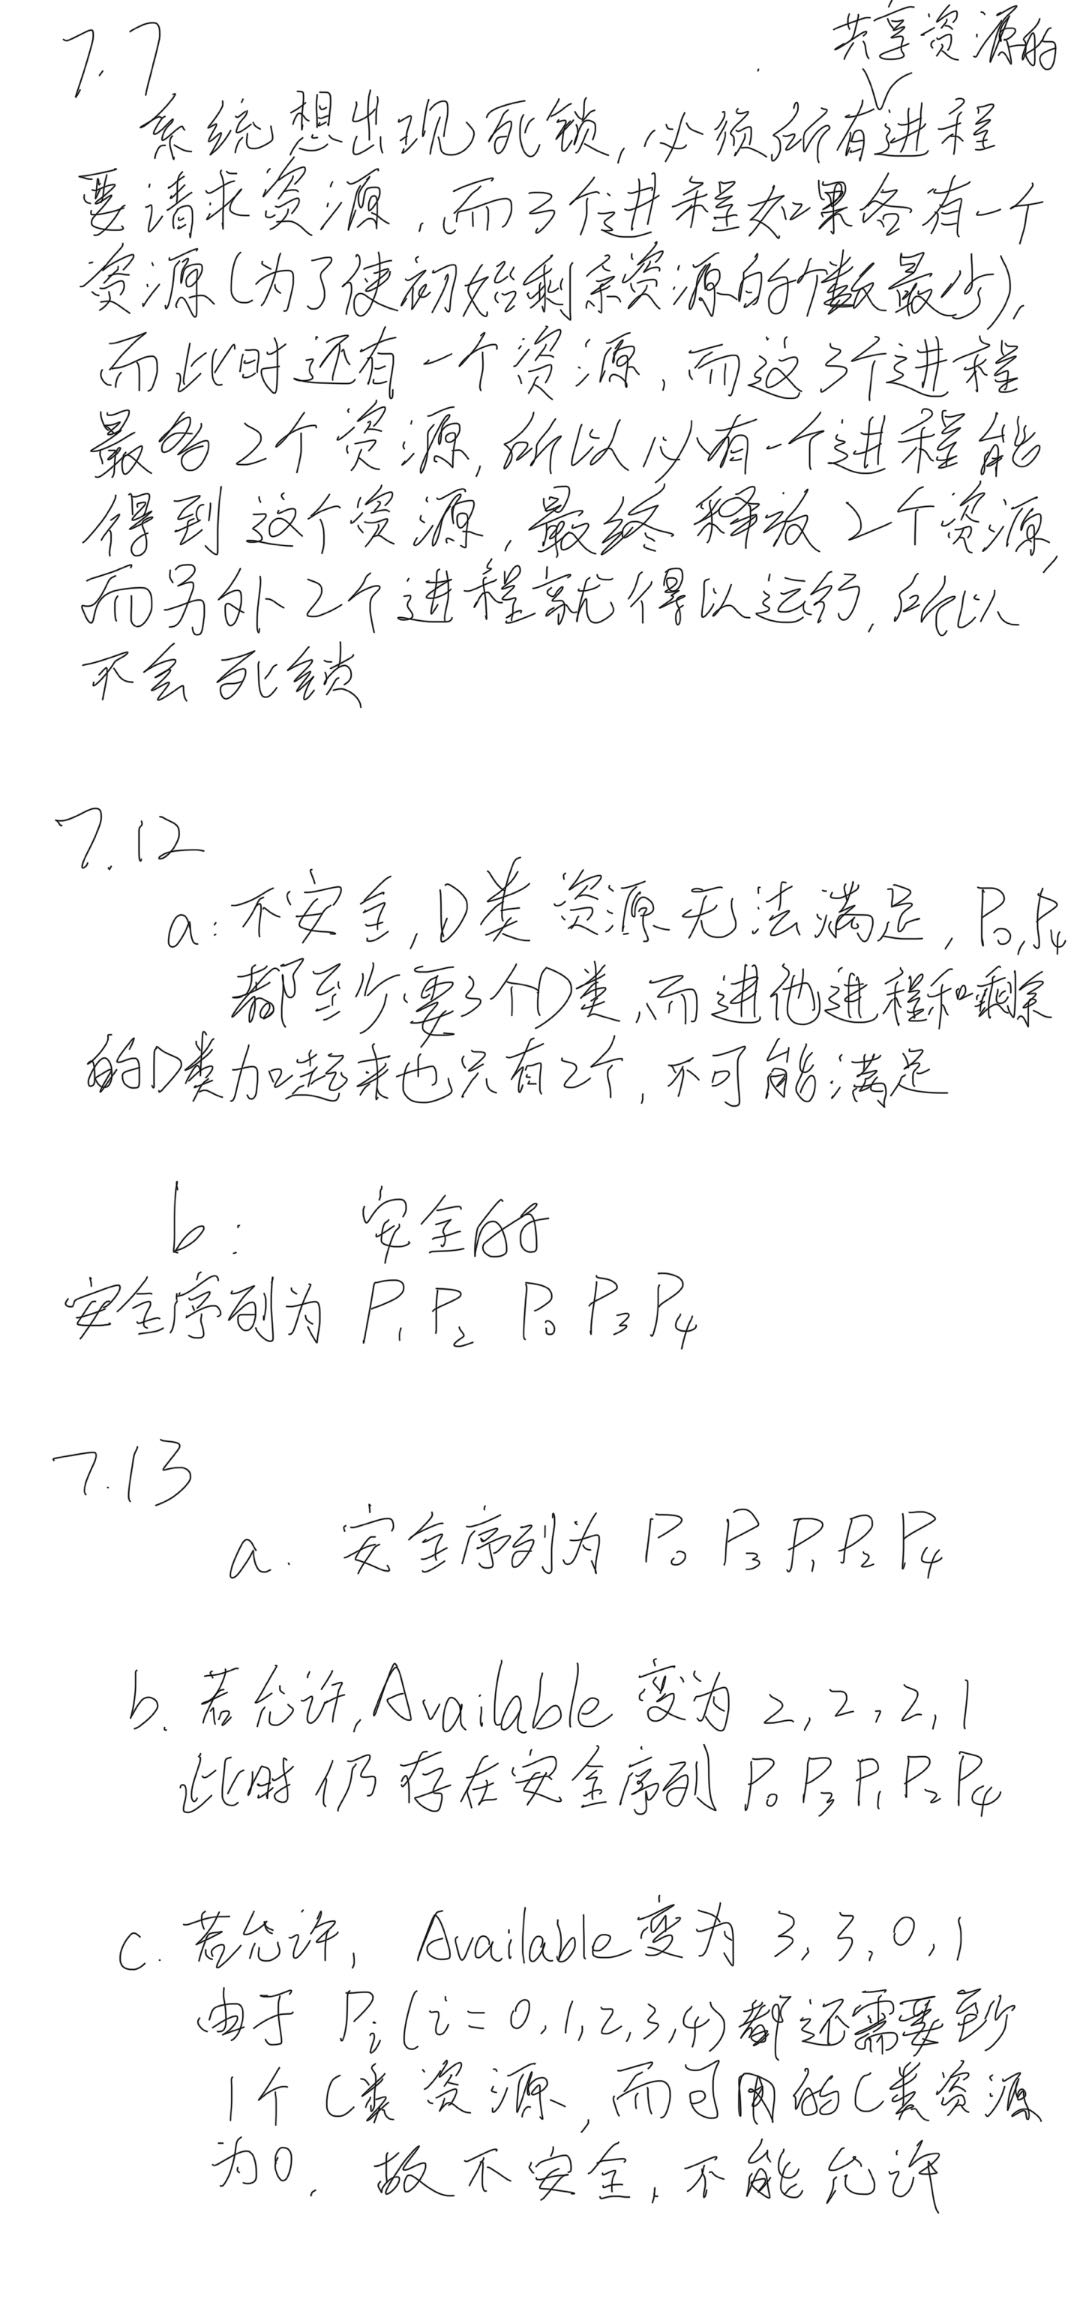 7.7
共享资源的
系统想出现死锁，必须所有进程
要请求资源，而3个进程如果各有一个
资源(为了使初始剩余资源的个数最少)，
而此时还有一个资源，而这3个进程
最多2个资源，所以必有一个进程能
得到这个资源，最终释放2个资源，
而另外2个进程就得以运行，所以
不会死锁
7.12
a: 不安全，D类资源无法满足，P0,P4
都至少要3个D类，而进他进程和剩余
的D类加起来也只有2个，不可能满足
b: 安全的
安全序列为 P1 P2 P0 P3 P4
7.13
a. 安全序列为 P0 P3 P1 P2 P4
b. 若允许，Available 变为 2,2,2,1
此时仍存在安全序列 P0 P3 P1 P2 P4
c. 若允许， Available变为 3,3,0,1
由于 Pi (i=0,1,2,3,4)都还需要至少
1个C类资源，而可用的C类资源
为0，故不安全，不能允许